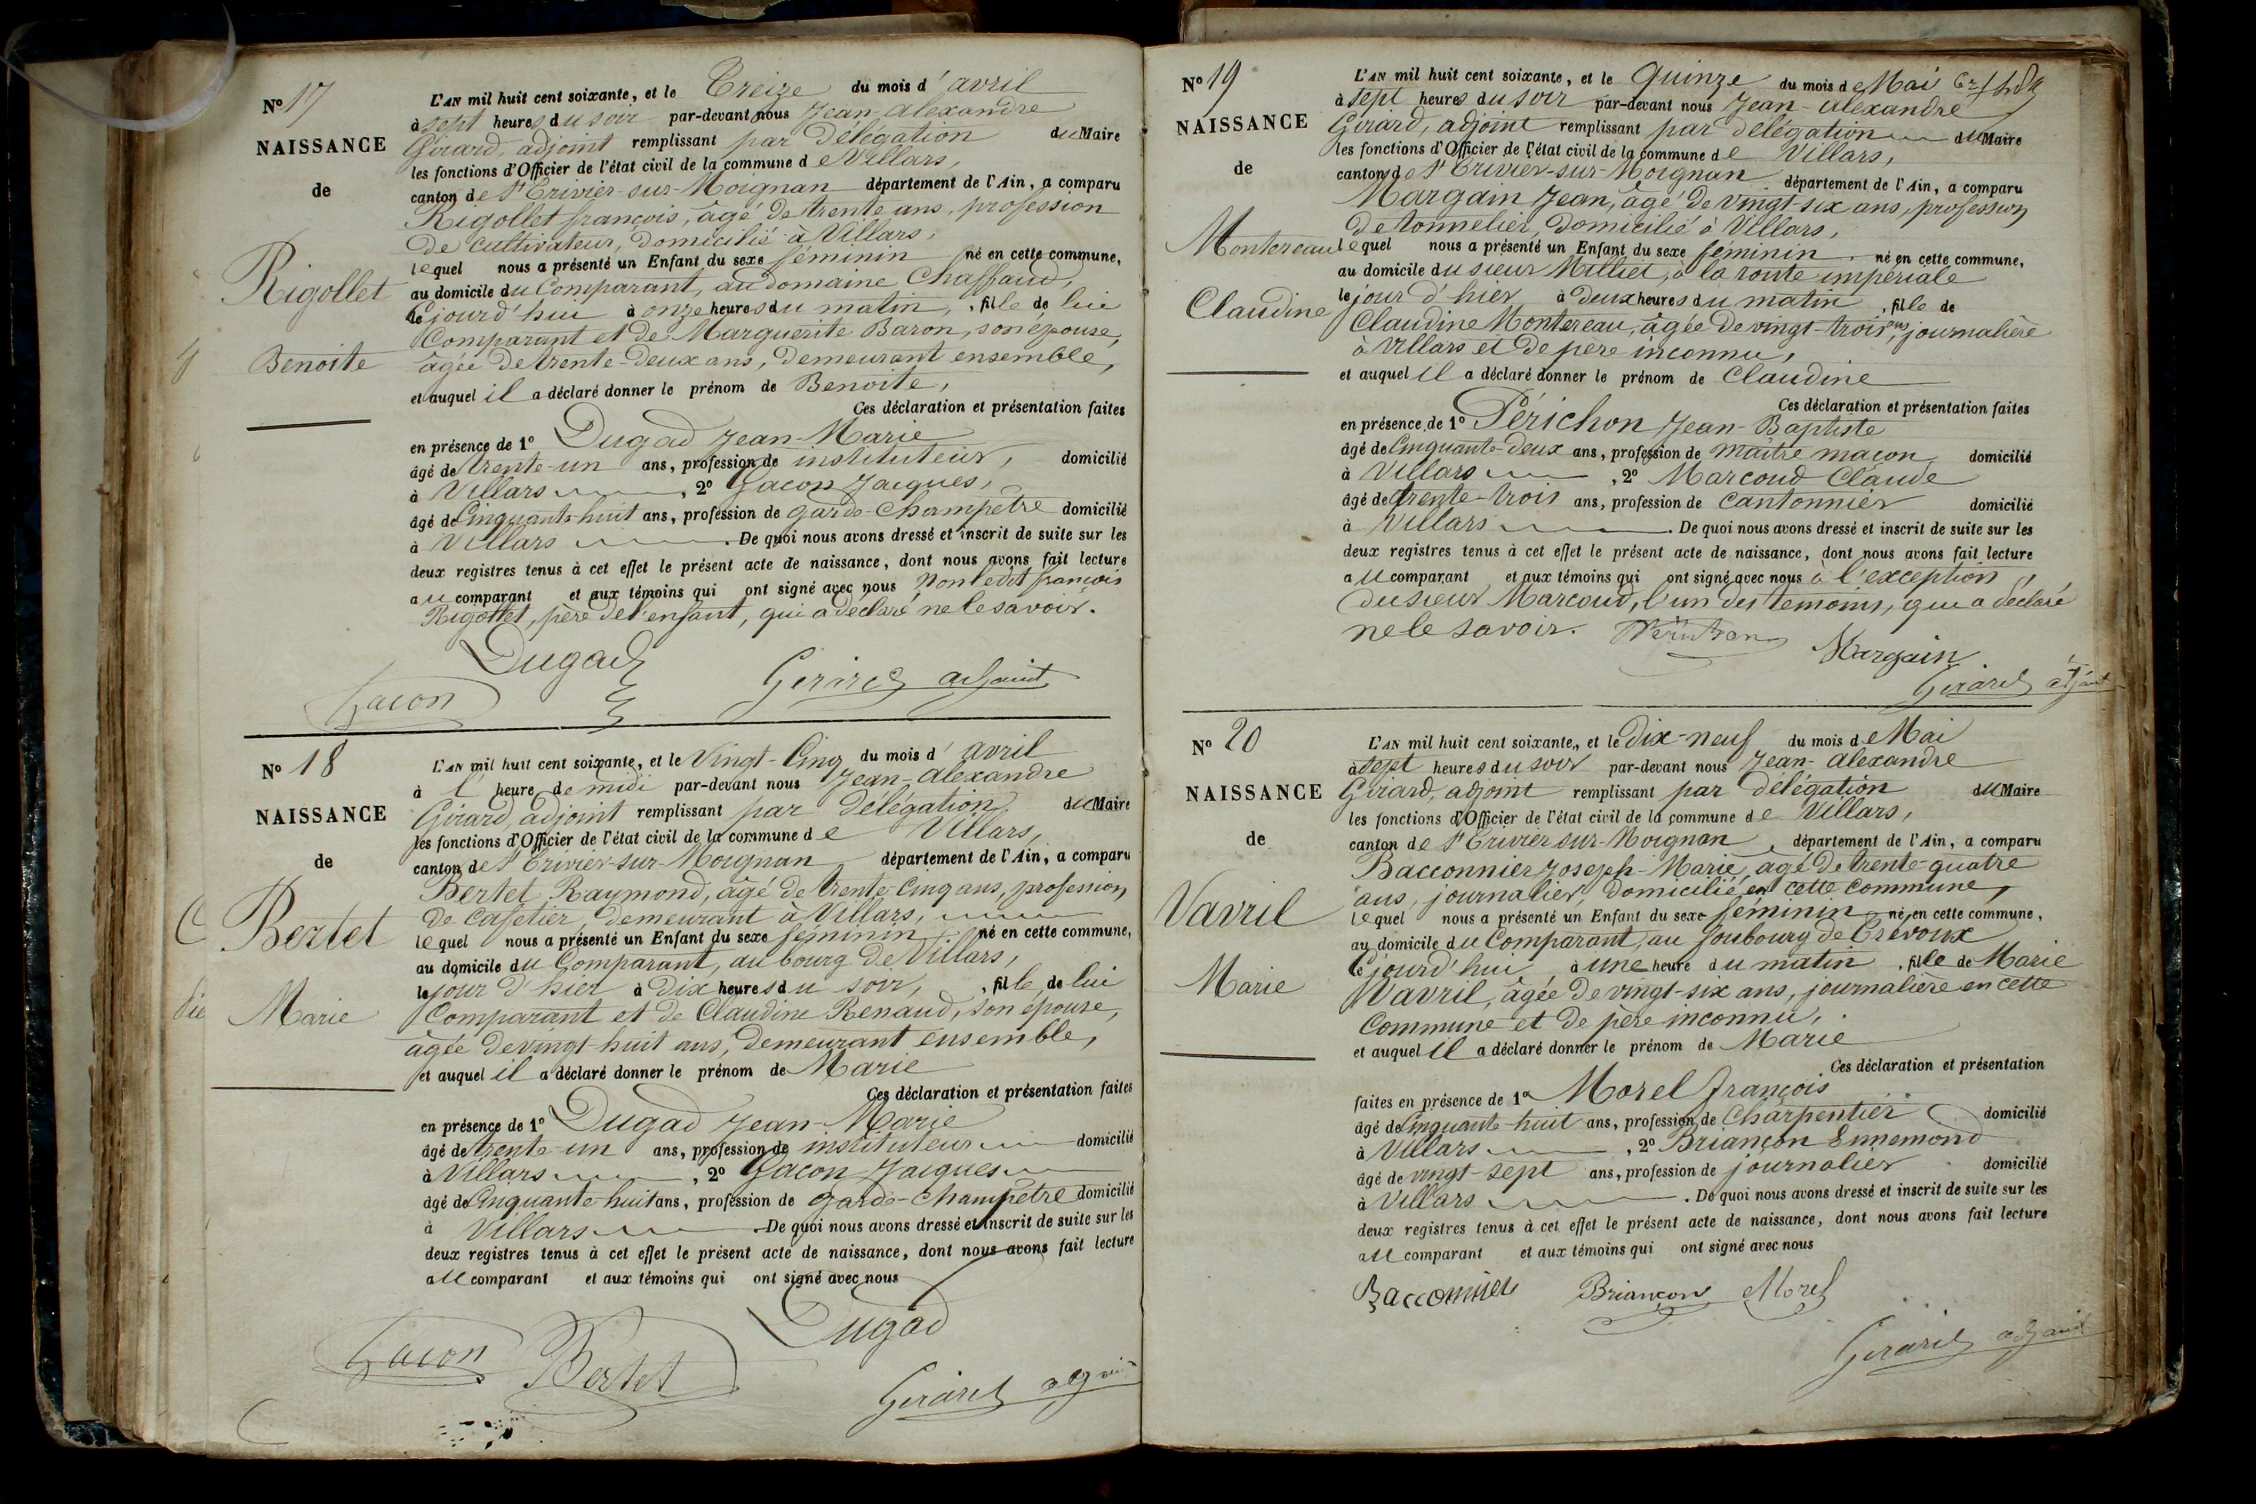 N° 17
NAISSANCE
de
Rigollet
Benoite
L'AN mil huit cent soixante, et le Treize du mois d'avril
à sept heures du soir par-devant nous Jean-Alexandre
Girard, adjoint remplissant par Délégation du Maire
les fonctions d'Officier de l'état civil de la commune de Villars,
canton de St Trivier-sur-Moignan département de l'Ain, a comparu
Rigollet françois, âgé de trente ans, profession
de cultivateur, domicilié à Villars,
lequel nous a présenté un Enfant du sexe féminin né en cette commune,
au domicile du Comparant, au domaine Chaffaud,
cejourd'hui à onze heures du matin, fille de lui
Comparant et de Marguerite Baron, son épouse,
âgée de trente-deux ans, demeurant ensemble,
et auquel il a déclaré donner le prénom de Benoite,
Ces déclaration et présentation faites
en présence de 1° Dugad Jean-Marie
âgé de trente-un ans, profession de instituteur, domicilié
à Villars, 2° Gacon Jacques,
âgé de Cinquante-huit ans, profession de garde-Champêtre domicilié
à Villars. De quoi nous avons dressé et inscrit de suite sur les
deux registres tenus à cet effet le présent acte de naissance, dont nous avons fait lecture
au comparant et aux témoins qui ont signé avec nous non ledit françois
Rigollet, père de l'enfant, qui a déclaré ne le savoir.
Dugad
Gacon Girard adjoint
N° 18
NAISSANCE
de
Bertet
Marie
L'AN mil huit cent soixante, et le Vingt-Cinq du mois d'avril
à l'heure de midi par-devant nous Jean-Alexandre
Girard, adjoint remplissant par Délégation du Maire
les fonctions d'Officier de l'état civil de la commune de Villars,
canton de St Trivier-sur-Moignan, département de l'Ain, a comparu
Bertet Raymond, âgé de trente-Cinq ans, profession
de Cafetier, demeurant à Villars,
lequel nous a présenté un Enfant du sexe féminin né en cette commune,
au domicile du Comparant, au bourg de Villars,
le jour d'hier à Dix heures du soir, fille de lui
Comparant et de Claudine Renaud, son épouse,
âgée de vingt-huit ans, demeurant ensemble,
et auquel il a déclaré donner le prénom de Marie
Ces déclaration et présentation faites
en présence de 1° Dugad Jean-Marie
âgé de trente-un ans, profession de instituteur domicilié
à Villars, 2° Gacon Jacques
âgé de Cinquante-huit ans, profession de garde-champêtre domicilié
à Villars. De quoi nous avons dressé et inscrit de suite sur les
deux registres tenus à cet effet le présent acte de naissance, dont nous avons fait lecture
au comparant et aux témoins qui ont signé avec nous
Gacon Bertet Dugad
Girard adjoint
N° 19
NAISSANCE
de
Montereau
Claudine
L'AN mil huit cent soixante, et le Quinze du mois de Mai
à sept heures du soir par-devant nous Jean-Alexandre
Girard, adjoint remplissant par délégation du Maire
les fonctions d'Officier de l'état civil de la commune de Villars,
canton de St Trivier-sur-Moignan département de l'Ain, a comparu
Margain Jean, âgé de vingt-six ans, profession
de tonnelier, domicilié à Villars,
lequel nous a présenté un Enfant du sexe féminin né en cette commune,
au domicile du sieur Milliet, à la route impériale
le jour d'hier à deux heures du matin, fille de
Claudine Montereau, âgée de vingt-trois ans, journalière
à Villars et de père inconnu,
et auquel il a déclaré donner le prénom de Claudine
Ces déclaration et présentation faites
en présence de 1° Périchon Jean-Baptiste
âgé de Cinquante-deux ans, profession de maître maçon domicilié
à Villars, 2° Marcoud Claude
âgé de trente-trois ans, profession de Cantonnier domicilié
à Villars. De quoi nous avons dressé et inscrit de suite sur les
deux registres tenus à cet effet le présent acte de naissance, dont nous avons fait lecture
au comparant et aux témoins qui ont signé avec nous à l'exception
du sieur Marcoud, l'un des témoins, qui a déclaré
ne le savoir.
Margain
Girard adjoint
N° 20
NAISSANCE
de
Vavril
Marie
L'AN mil huit cent soixante, et le dix-neuf du mois de Mai
à sept heures du soir par-devant nous Jean-Alexandre
Girard, adjoint remplissant par délégation du Maire
les fonctions d'Officier de l'état civil de la commune de Villars,
canton de St Trivier sur-Moignan, département de l'Ain, a comparu
Bacconnier Joseph-Marie, âgé de trente-quatre
ans, journalier, domicilié en cette Commune,
lequel nous a présenté un Enfant du sexe féminin né en cette commune,
au domicile du Comparant, au foubourg de Trévoux
cejourd'hui, à une heure du matin, fille de Marie
Vavril, âgée de vingt-six ans, journalière en cette
Commune et de père inconnu,
et auquel il a déclaré donner le prénom de Marie
Ces déclaration et présentation
faites en présence de 1° Morel françois
âgé de Cinquante-huit ans, profession de Charpentier domicilié
à Villars, 2° Briançon Ennemond
âgé de vingt-sept ans, profession de journalier domicilié
à Villars. De quoi nous avons dressé et inscrit de suite sur les
deux registres tenus à cet effet le présent acte de naissance, dont nous avons fait lecture
au comparant et aux témoins qui ont signé avec nous
Bacconnier Briançon Morel
Girard adjoint